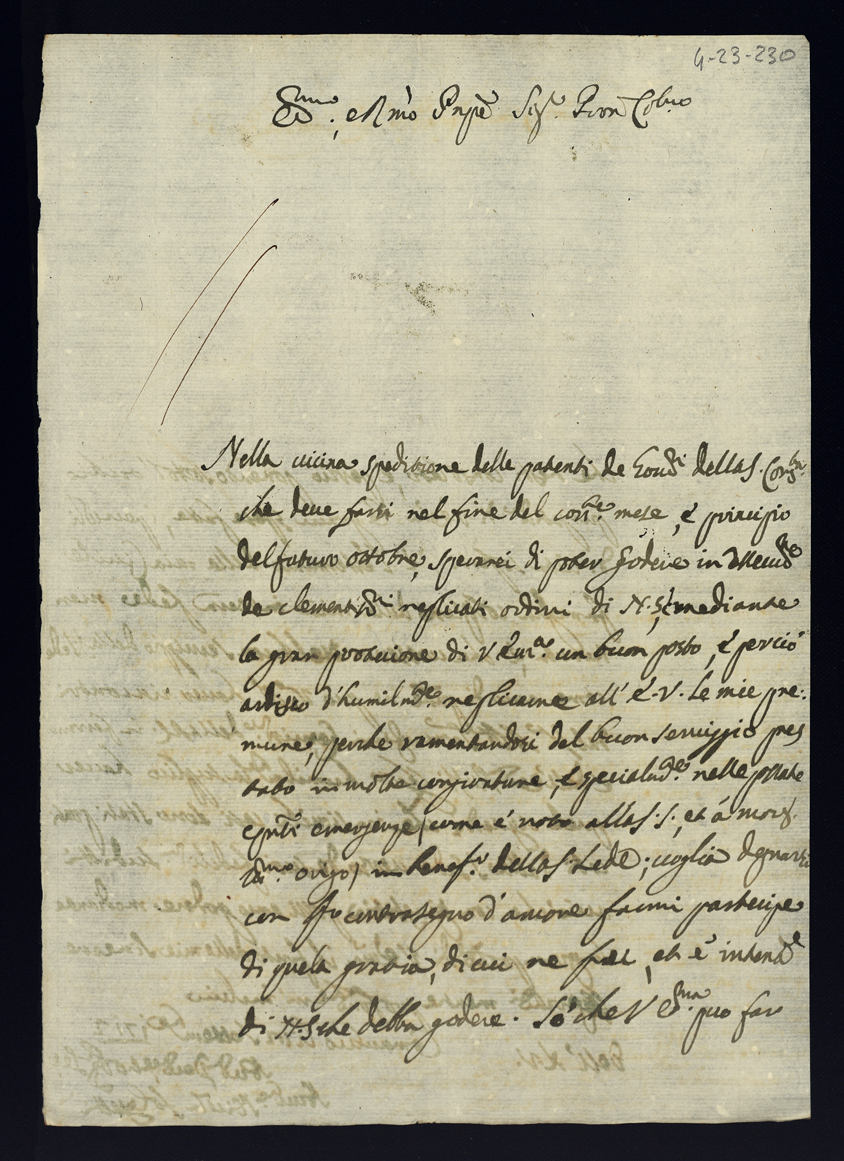 4-23-230
Em.mo, e Rmo Prnpe Sig.r Pron Col.mo
Nella vicina speditione delle patenti de Gov.ri della S. Cons.ta
che deve farsi nel fine del corr.te mese, è principio
del futuro ottobre, sperarei di poter godere in
de clementis.mi replicati ordini di N. S. mediante
la gran protezione di V. Em.a un buon posto, è perciò
ardisco d'humilm.te replicarne all' E. V. le mie pre:
mure, perche ramentandosi del buon serviggio pres
tato in molte congiunture, è specialm.te nelle passate
emergenze (come è noto alla S. S., et à mons.
Origo) in benef.o della S. Sede; voglia degnarsi
con contrasegno d'amore farmi partecipe
di quela gratia, di cui ne fece, et è intent.e
di N. S. che debba godere. Sò che V. Em.a puo far
dell' E. V.